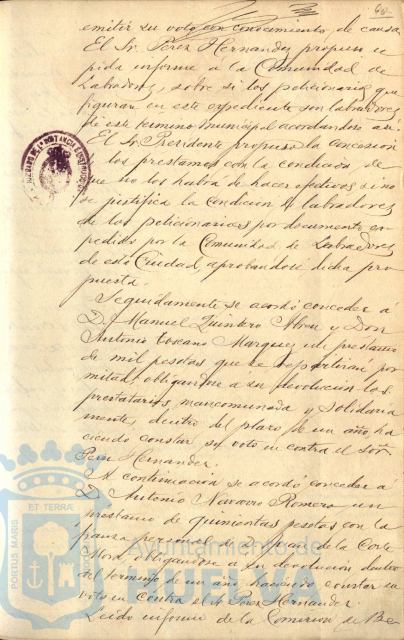 60
emitir su voto con conocimiento de causa
El Sr. Perez Hernandez propuso se
pida informe á la Comunidad de
Labradores, sobre si los peticionarios que
figuran en este expediente son labradores
de este termino municipal acordandose así.
El Sr. Presidente propuso la concesion
de los prestamos con la condición de
que no los habrá de hacer efectivos sino
se justifica la condicion de labradores
de los peticionarios por documento ex-
pedido por la Comunidad de Labradores
de esta Ciudad, aprobandose dicha pro
puesta.
Seguidamente se acordó conceder á
D. Manuel Quintero y Don
Antonio Toscano Marquez un prestamo
de mil pesetas que se repartiran por
mitad, obligandose a su devolucion los
prestatarios mancomunada y solidaria
mente, dentro del plazo de un año, ha
ciendo constar su voto en contra el Sor
Perez Hernandez.
A continuación se acordó conceder á
D. Antonio Navarro Romero un
prestamo de quinientas pesetas con la
fianza personal de de la Corte
obligandose a su devolucion dentro
del termino de un año haciendo constar su
voto en contra el Sr Perez Hernandez.
Leido informe de la Comision de Be
JUZGADO DE 1ª INSTANCIA E INSTRUCCION
PORTUS MARIS
ET TERRÆ
Ayuntamiento de
HUELVA